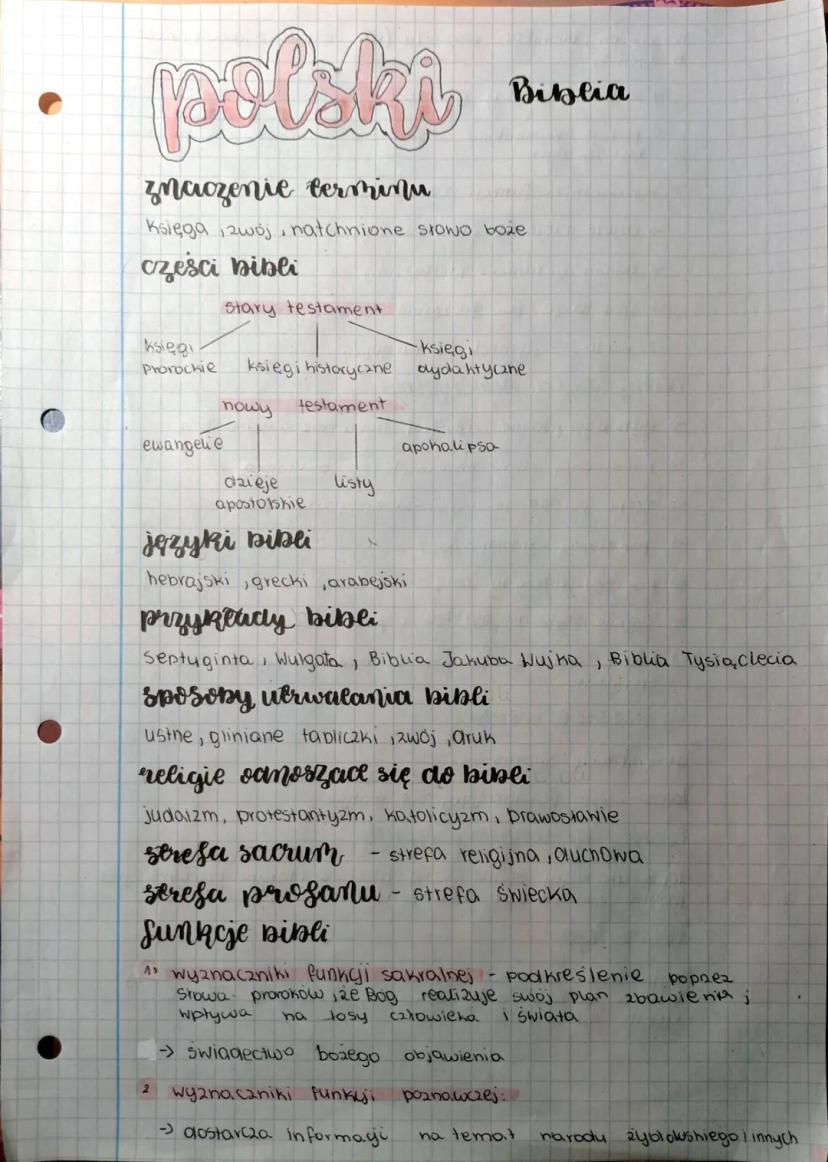 polski Biblia
znaczenie terminu
księga, zwój, natchnione słowo boże
części bibli
stary testament
księgi prorockie księgi historyczne księgi dydaktyczne
nowy testament
ewangelie apokalipsa
dzieje apostolskie listy
języki bibli
hebrajski, grecki, arabejski
przykłady bibli
Septuginta, Wulgata, Biblia Jakuba Wujka, Biblia Tysiąclecia
sposoby utrwalania bibli
ustne, gliniane tabliczki, zwój, druk
religie odnoszące się do bibli
judaizm, protestantyzm, katolicyzm, prawosławie
strefa sacrum - strefa religijna, duchowa
strefa profanu - strefa świecka
funkcje bibli
1) wyznaczniki funkcji sakralnej - podkreślenie poprzez
słowa proroków, że Bóg realizuje swój plan zbawienia i
wpływa na losy człowieka i świata
-> świadectwo bożego objawienia
2 wyznaczniki funkcji poznawczej:
-> dostarcza informacji na temat narodu żydowskiego i innych